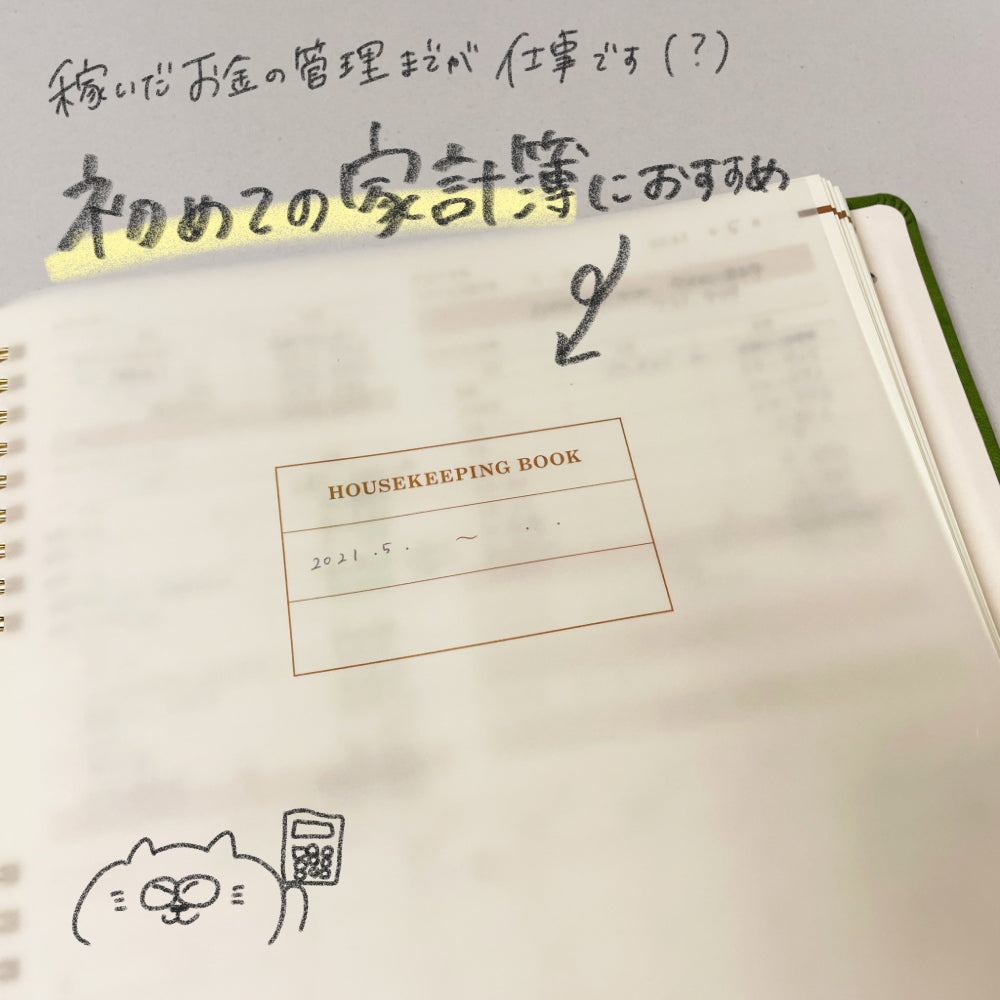 稼いだお金の管理までが仕事です(?)
初めての家計簿におすすめ
HOUSEKEEPING BOOK
2021.5. ～ . .